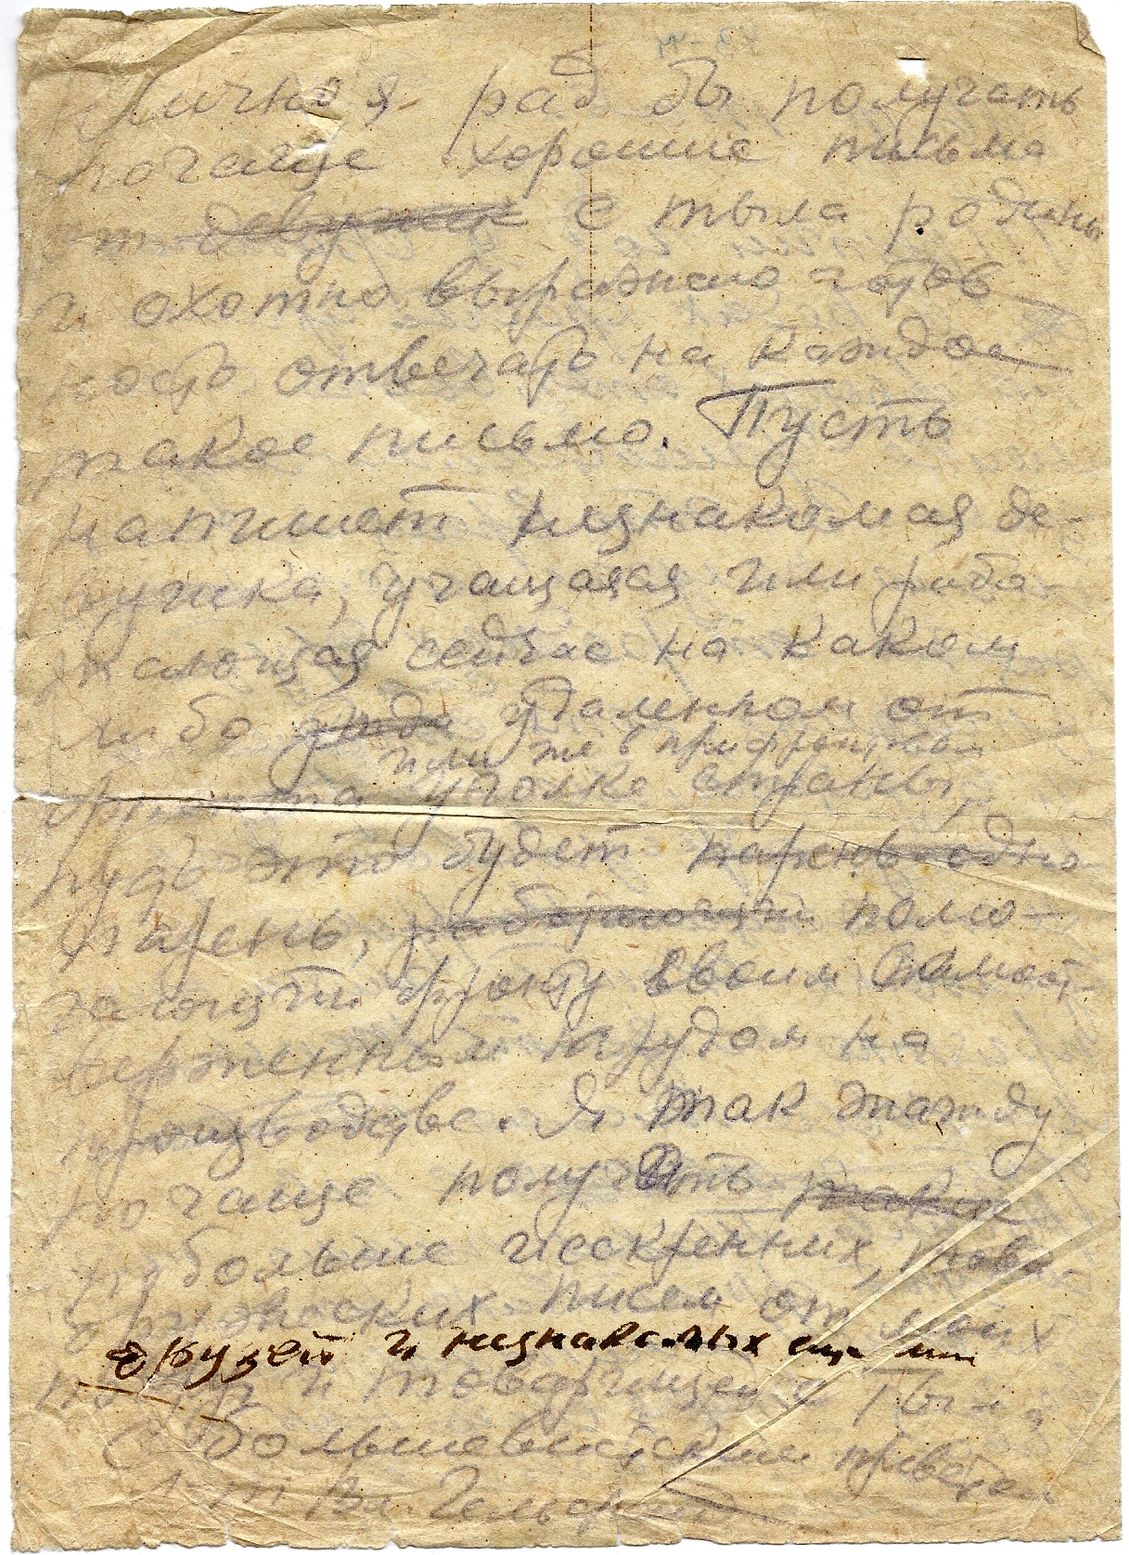 Лично я рад бы получать
почаще хорошие письма
от девушек с тыла родины
и охотно выражаю готов
ность отвечать на каждое
такое письмо. Пусть
напишет незнакомая де-
вушка, учащаяся или рабо-
тающая сейчас на каком
либо удаленном от
или же в прифронтовом
фронта уголке страны,
пусть это будет парень одно
парень, работающий помо-
гающий фронту своим самоот-
верженным трудом на
производстве. Я так жажду
почаще получать такие
побольше искренних,
дружеских писем от моих
друзей и незнакомых еще мне
и товарищей с Тыла
С большевистским приветом
Л-т Вл. Гельфанд